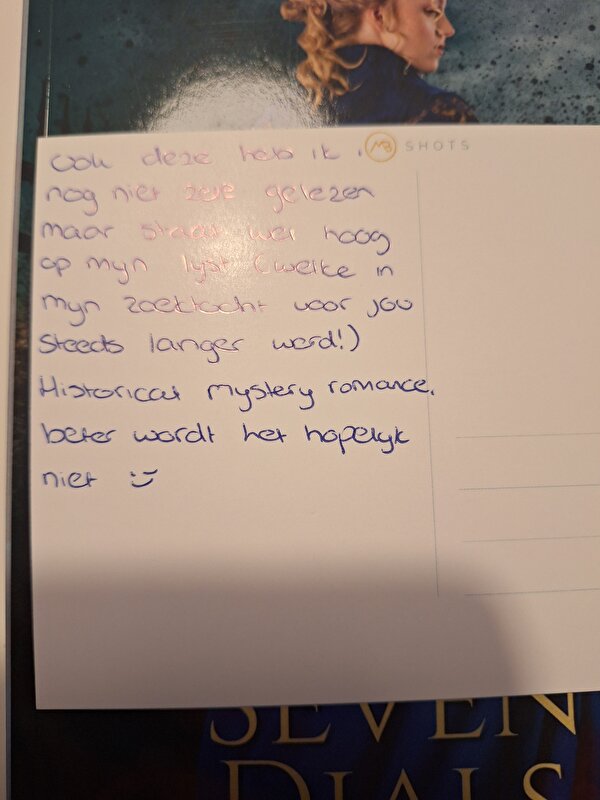 MB SHOTS
Ook deze heb ik
nog niet zelf gelezen
maar staat wel hoog
op mijn lijst (welke in
mijn zoektocht voor jou
steeds langer werd!)
Historical mystery romance.
beter wordt het hopelijk
niet :)
SEVEN
DIALS